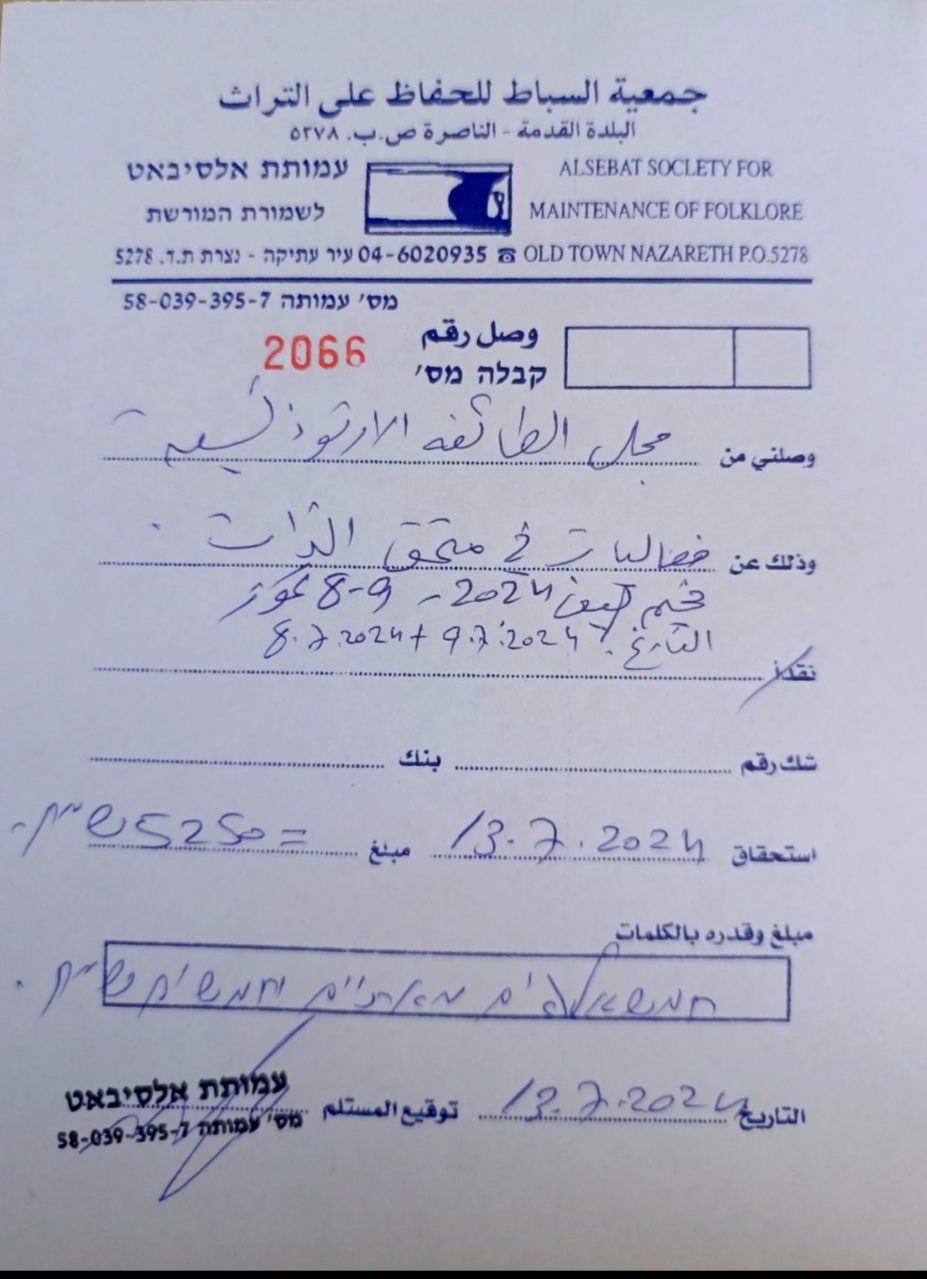 جمعية السباط للحفاظ على التراث
البلدة القدمة - الناصرة ص.ب. ٥٢٧٨
עמותת אלסיבאט
לשמורת המורשת
ALSEBAT SOCLETY FOR
MAINTENANCE OF FOLKLORE
OLD TOWN NAZARETH P.O.5278 ☎ 04-6020935 עיר עתיקה - נצרת ת.ד. 5278
מס' עמותה 58-039-395-7
وصل رقم
קבלה מס'
2066
وصلني من مجلس الطائفه الارثوذكسية
وذلك عن فعاليات في متحف التراث
مخيم 2024 - 8-9 تموز
التاريخ: 8.7.2024 + 9.7.2024
نقداً
شك رقم بنك
استحقاق 13.7.2024 مبلغ 5250= ש"ח
مبلغ وقدره بالكلمات
חמשת אלפים מאתיים וחמשים ש"ח
التاريخ 13.7.2024 توقيع المستلم
עמותת אלסיבאט
מס' עמותה 58-039-395-7